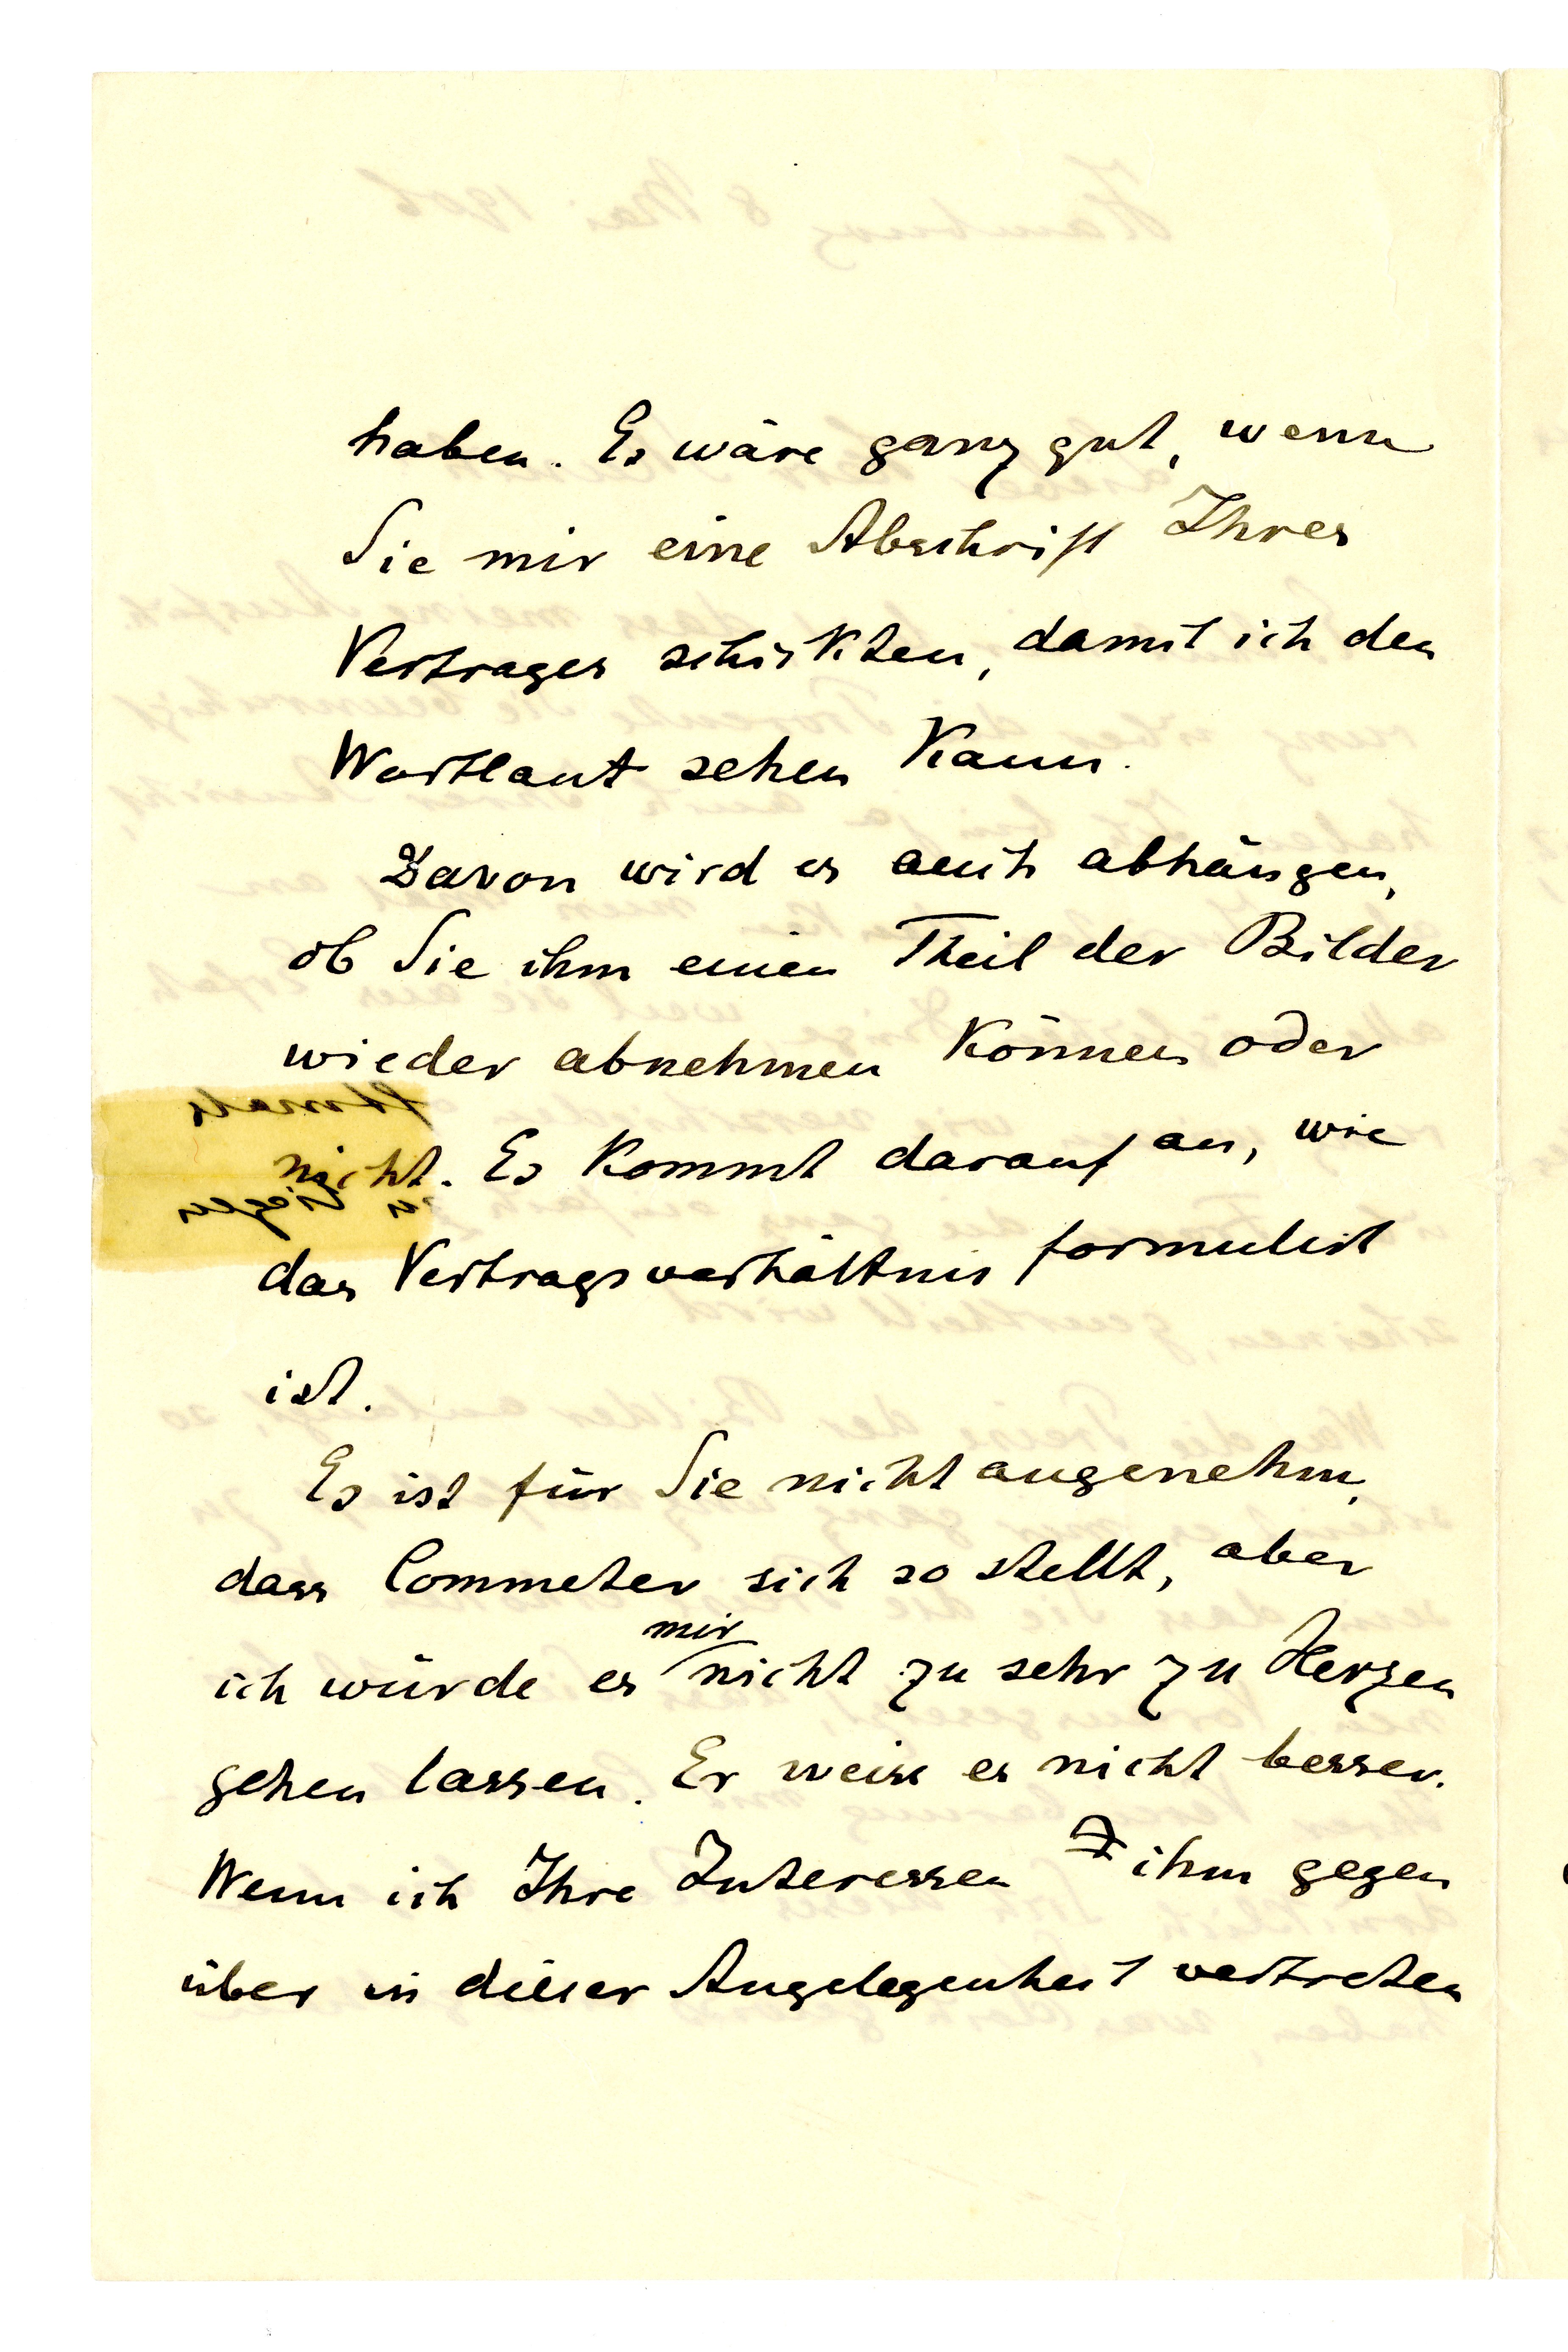 haben. Es wäre ganz gut, wenn
Sie mir eine Abschrift Ihres
Vertrages schickten, damit ich den
Wortlaut sehen kann.
Davon wird es auch abhängen,
ob Sie ihm einen Theil der Bilder
wieder abnehmen können oder
nicht. Es kommt darauf an, wie
das Vertragsverhältnis formulirt
ist.
Es ist für Sie nicht angenehm,
dass Commeter sich so stellt, aber
mir
ich würde es nicht zu sehr zu Herzen
gehen lassen. Er weiss es nicht besser.
Wenn ich Ihre Interessen ihm gegen
über in dieser Angelegenheit vertreten